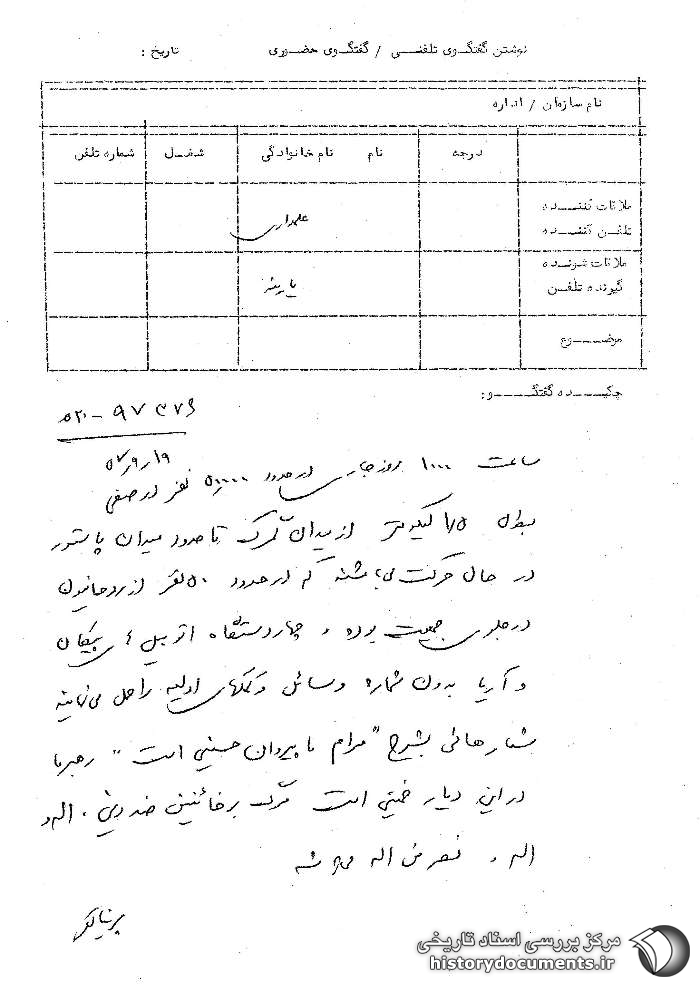 نوشتن گفتگوی تلفنی / گفتگوی حضوری تاریخ :
نام سازمان / اداره
درجه نام نام خانوادگی شغل شماره تلفن
ملاقات کننده
تلفن کننده
علمداری
ملاقات شونده
گیرنده تلفن
موضوع
چکیده گفتگو:
۵۲۰-۹۷۳۷۶
۵۷/۹/۱۹
ساعت ۱۰۰۰ روز جاری در حدود ۵۰۰۰۰ نفر در صفی
بطول ۱/۵ کیلومتر از میدان گمرک تا حدود میدان پاستور
در حال حرکت می باشند که در حدود ۵۰ نفر از روحانیون
در جلوی جمعیت بوده و چهار دستگاه اتومبیل پیکان
و آریا بدون شماره وسائل و کمکهای اولیه را حمل می نمایند
شعارهائی بشرح "مرام ما پیروان حسینی است" رهبر ما
در این دیار خمینی است مرگ بر خائنین ضد دین
اله و نصر من اله
مرکز بررسی اسناد تاریخی
historydocuments.ir